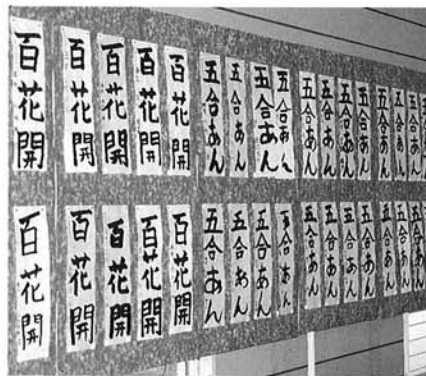 百花開
百花開
百花開
百花開
百花開
五合あん
五合あん
五合あん
五合あん
五合あん
五合あん
五合あん
五合あん
五合あん
五合あん
五合あん
百花開
百花開
百花開
百花開
百花開
五合あん
五合あん
五合あん
五合あん
五合あん
五合あん
五合あん
五合あん
五合あん
五合あん
五合あん